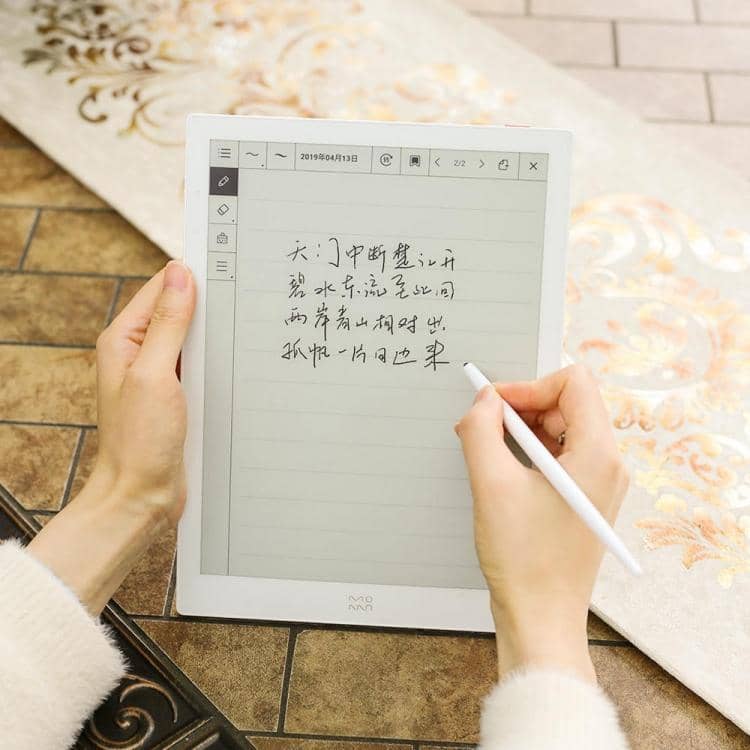 2019年04月13日 2/2
天门中断楚江开
碧水东流至此回
两岸青山相对出.
孤帆一片日边来.
MOAAN